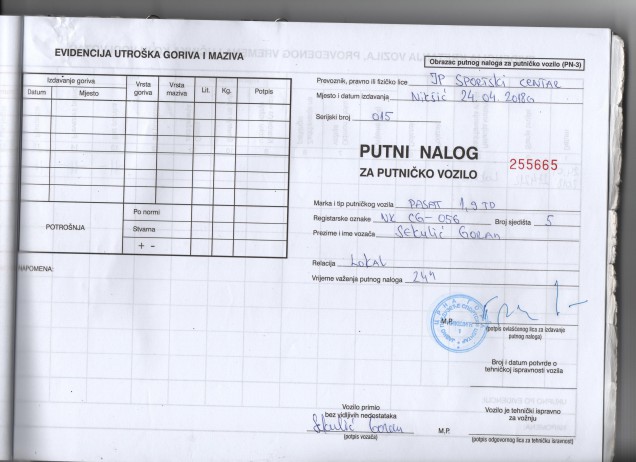 EVIDENCIJA UTROŠKA GORIVA I MAZIVA
Izdavanje goriva
Datum Mjesto
Vrsta goriva
Vrsta maziva
Lit.
Kg.
Potpis
POTROŠNJA
Po normi
Stvarna
+ -
NAPOMENA:
Obrazac putnog naloga za putničko vozilo (PN-3)
Prevoznik, pravno ili fizičko lice JP SPORTSKI CENTAR
Mjesto i datum izdavanja Nikšić 24.04.2018g
Serijski broj 015
PUTNI NALOG
ZA PUTNIČKO VOZILO
255665
Marka i tip putničkog vozila PASAT 1,9 TD
Registarske oznake NK CG-056 Broj sjedišta 5
Prezime i ime vozača SEKULIĆ GORAN
Relacija LOKAL
Vrijeme važenja putnog naloga 24h
M.P.
(potpis ovlašćenog lica za izdavanje
putnog naloga)
Broj i datum potvrde o
tehničkoj ispravnosti vozila
Vozilo primio
bez vidljivih nedostataka
Sekulić Goran
(potpis vozača)
M.P.
Vozilo je tehnički ispravno
za vožnju
(potpis odgovornog lica za tehničku ispravnost)